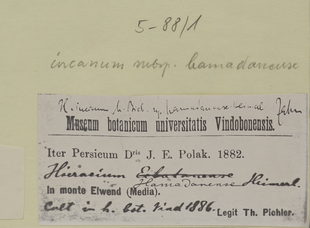 5-88/1
incanum subsp. hamadanense
Zahn
Museum botanicum universitatis Vindobonensis.
Iter Persicum Dris J. E. Polak. 1882.
Hieracium Hamadanense Heimerl.
In monte Elwend (Media).
Cult in h. bot. Vind 1886. Legit Th. Pichler.